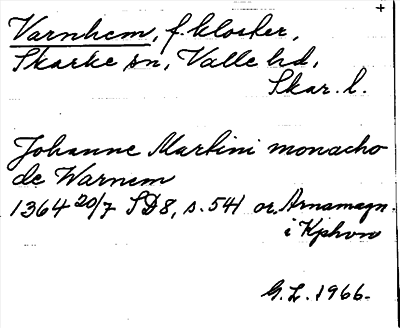 +
Varnhem, f. kloster,
Skarke sn, Valle hd,
Skar. l.
Johanne Martini monacho
de Warnem
1364 20/7 SD8, s. 541 or. Arnamagn.
i Kphvn
G.L. 1966.